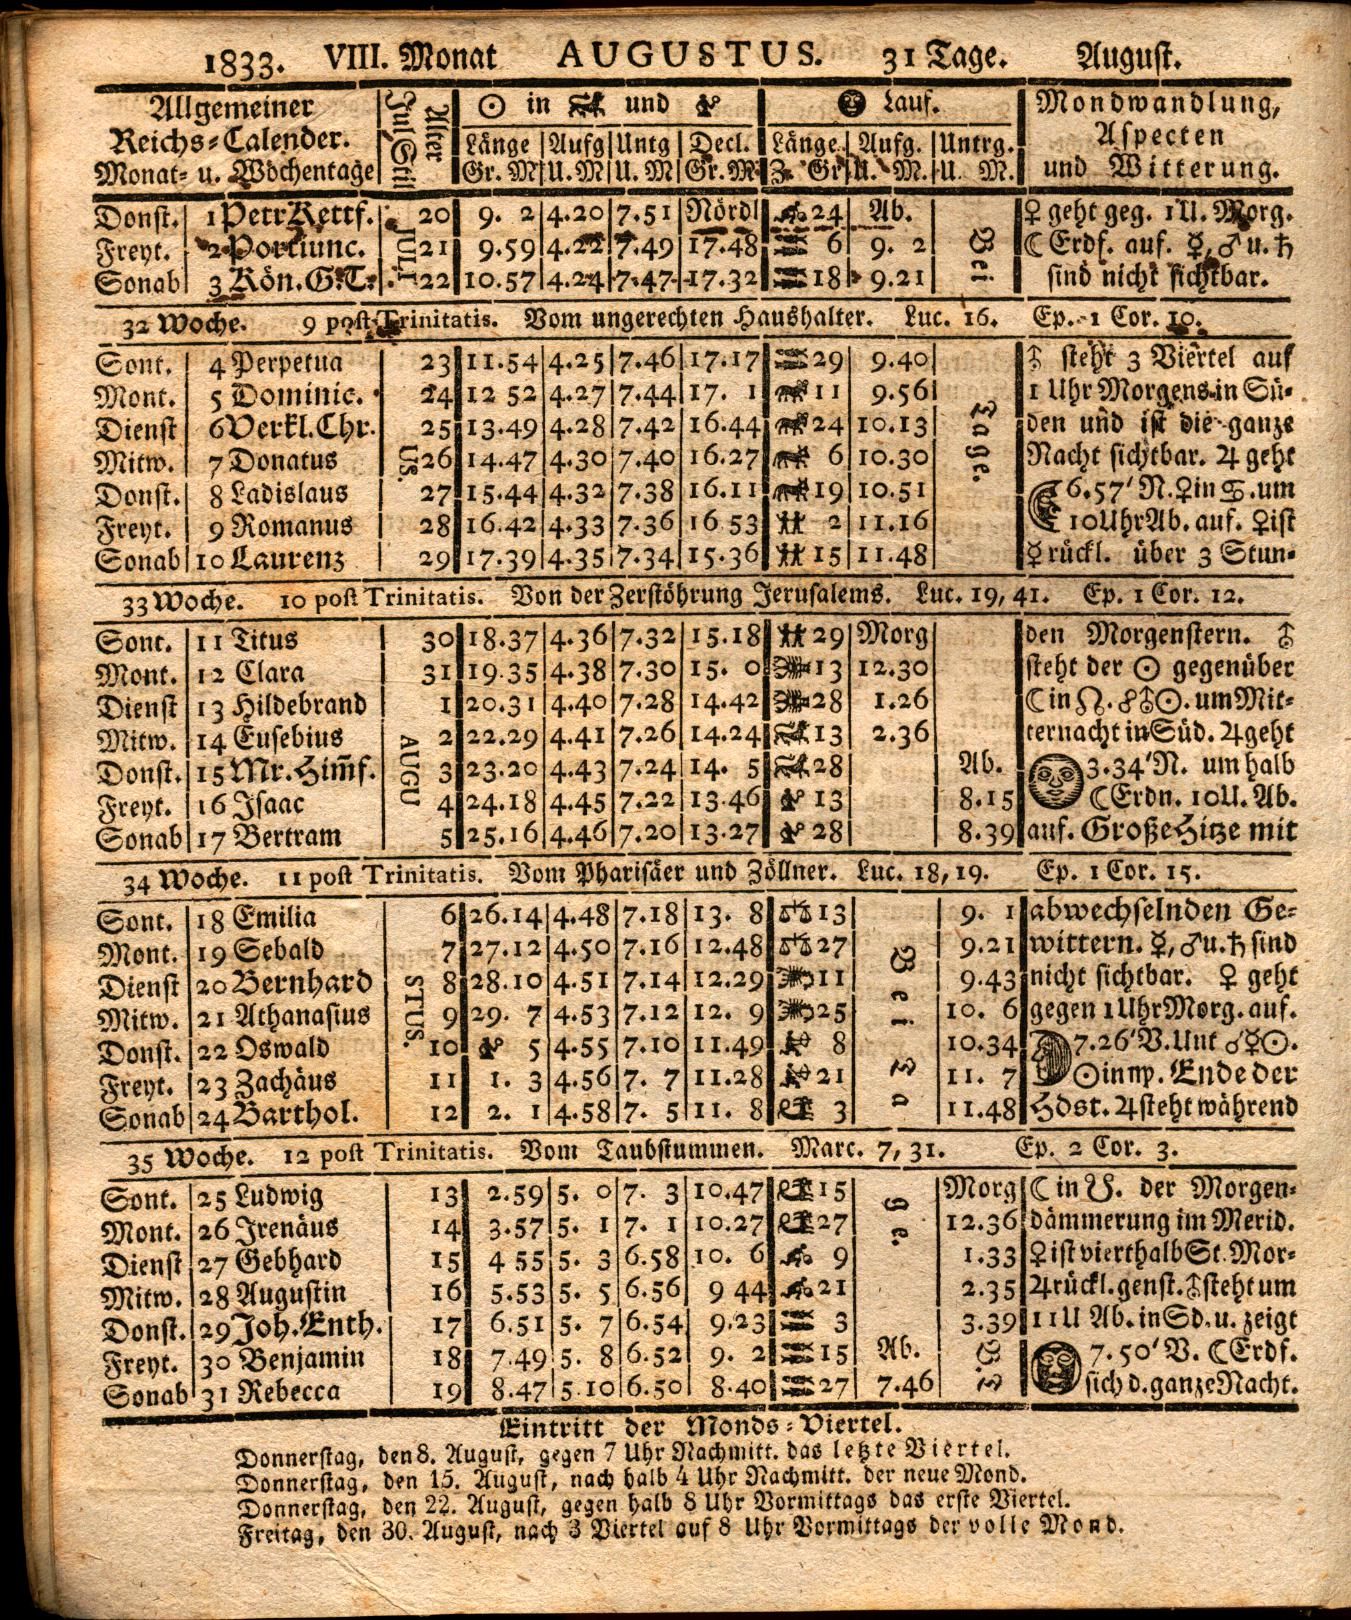 1833. VIII. Monat AUGUSTUS. 31 Tage. August.
Allgemeiner Reichs=Calender. Monat= u. Wochentage | Jul. Stil | Alter | ☉ in ♌ und ♍ | Lauf. | Mondwandlung, Aspecten und Witterung.
Länge Gr. M | Aufg U. M | Untg U. M | Decl. Gr. M | Länge Z. Gr | Aufg. U. M. | Untrg. U. M.
Donst. 1 Petr Kettf. 20 9. 2 4.20 7.51 Nördl ♒ 24 Ab. ♀ geht geg. 1 U. Morg.
Freyt. 2 Portiunc. JULI 21 9.59 4.22 7.49 17.48 ♓ 6 9. 2 Bei ☾ Erdf. auf. ☿, ♂ u. ♄
Sonab 3 Kön. G. T. 22 10.57 4.24 7.47 17.32 ♓ 18 9.21 sind nicht sichtbar.
32 Woche. 9 post Trinitatis. Vom ungerechten Haushalter. Luc. 16. Ep. 1 Cor. 10.
Sont. 4 Perpetua 23 11.54 4.25 7.46 17.17 ♓ 29 9.40 ⛢ steht 3 Viertel auf
Mont. 5 Dominic. 24 12 52 4.27 7.44 17. 1 ♈ 11 9.56 1 Uhr Morgens in Sü=
Dienst 6 Verkl. Chr. 25 13.49 4.28 7.42 16.44 ♈ 24 10.13 Tage. den und ist die ganze
Mitw. 7 Donatus US. 26 14.47 4.30 7.40 16.27 ♉ 6 10.30 Nacht sichtbar. ♃ geht
Donst. 8 Ladislaus 27 15.44 4.32 7.38 16.11 ♉ 19 10.51 ☾ 6.57' N. ♀ in ♋. um
Freyt. 9 Romanus 28 16.42 4.33 7.36 16 53 ♊ 2 11.16 10 Uhr Ab. auf. ♀ ist
Sonab 10 Laurenz 29 17.39 4.35 7.34 15.36 ♊ 15 11.48 ☿ rückl. über 3 Stun=
33 Woche. 10 post Trinitatis. Von der Zerstöhrung Jerusalems. Luc. 19, 41. Ep. 1 Cor. 12.
Sont. 11 Titus 30 18.37 4.36 7.32 15.18 ♊ 29 Morg den Morgenstern. ⛢
Mont. 12 Clara 31 19.35 4.38 7.30 15. 0 ♋ 13 12.30 steht der ☉ gegenüber
Dienst 13 Hildebrand 1 20.31 4.40 7.28 14.42 ♋ 28 1.26 ☾ in ☊. ☍ ⛢ ☉. um Mit=
Mitw. 14 Eusebius AUGU 2 22.29 4.41 7.26 14.24 ♌ 13 2.36 ternacht in Süd. ♃ geht
Donst. 15 Mr. Him̃f. 3 23.20 4.43 7.24 14. 5 ♌ 28 Ab. 3.34' N. um halb
Freyt. 16 Isaac 4 24.18 4.45 7.22 13.46 ♍ 13 8.15 ☾ Erdn. 10 U. Ab.
Sonab 17 Bertram 5 25.16 4.46 7.20 13.27 ♍ 28 8.39 auf. Große Hitze mit
34 Woche. 11 post Trinitatis. Vom Pharisäer und Zöllner. Luc. 18, 19. Ep. 1 Cor. 15.
Sont. 18 Emilia 6 26.14 4.48 7.18 13. 8 ♎ 13 9. 1 abwechselnden Ge=
Mont. 19 Sebald 7 27.12 4.50 7.16 12.48 ♎ 27 9.21 wittern. ☿, ♂ u. ♄ sind
Dienst 20 Bernhard STUS. 8 28.10 4.51 7.14 12.29 ♏ 11 Bei 9.43 nicht sichtbar. ♀ geht
Mitw. 21 Athanasius 9 29. 7 4.53 7.12 12. 9 ♏ 25 10. 6 gegen 1 Uhr Morg. auf.
Donst. 22 Oswald 10 ♍ 5 4.55 7.10 11.49 ♐ 8 10.34 7.26' V. Unt ☌ ☿ ☉.
Freyt. 23 Zachäus 11 1. 3 4.56 7. 7 11.28 ♐ 21 Ta 11. 7 ☉ in ♍. Ende der
Sonab 24 Barthol. 12 2. 1 4.58 7. 5 11. 8 ♑ 3 11.48 Hdst. ♃ steht während
35 Woche. 12 post Trinitatis. Vom Taubstummen. Marc. 7, 31. Ep. 2 Cor. 3.
Sont. 25 Ludwig 13 2.59 5. 0 7. 3 10.47 ♑ 15 ge. Morg ☾ in ☋. der Morgen=
Mont. 26 Irenäus 14 3.57 5. 1 7. 1 10.27 ♑ 27 12.36 dämmerung im Merid.
Dienst 27 Gebhard 15 4 55 5. 3 6.58 10. 6 ♒ 9 1.33 ♀ ist vierthalb St. Mor=
Mitw. 28 Augustin 16 5.53 5. 5 6.56 9 44 ♒ 21 2.35 ♃ rückl. genst. ⛢ steht um
Donst. 29 Joh. Enth. 17 6.51 5. 7 6.54 9.23 ♓ 3 3.39 11 U Ab. in Sd. u. zeigt
Freyt. 30 Benjamin 18 7.49 5. 8 6.52 9. 2 ♓ 15 Ab. B. 7.50' V. ☾ Erdf.
Sonab 31 Rebecca 19 8.47 5 10 6.50 8.40 ♓ 27 7.46 T. sich d. ganze Nacht.
Eintritt der Monds=Viertel.
Donnerstag, den 8. August, gegen 7 Uhr Nachmitt. das letzte Viertel.
Donnerstag, den 15. August, nach halb 4 Uhr Nachmitt. der neue Mond.
Donnerstag, den 22. August, gegen halb 8 Uhr Vormittags das erste Viertel.
Freitag, den 30. August, nach 3 Viertel auf 8 Uhr Vormittags der volle Mond.